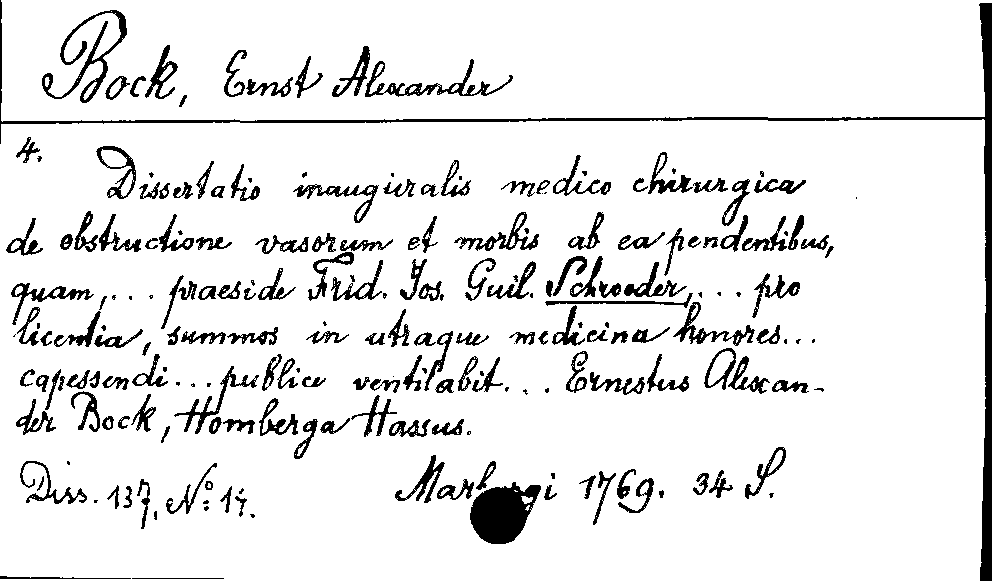 Bock, Ernst Alexander
4.
Dissertatio inauguralis medico chirurgica
de obstructione vasorum et morbis ab ea pendentibus,
quam,... praeside Frid. Jos. Guil. Schroeder,... pro
licentia, summos in utraque medicina honores...
capessendi... publice ventilabit... Ernestus Alexan-
der Bock, Homberga Hassus.
Diss. 137, No: 14. Marburgi 1769. 34 S.